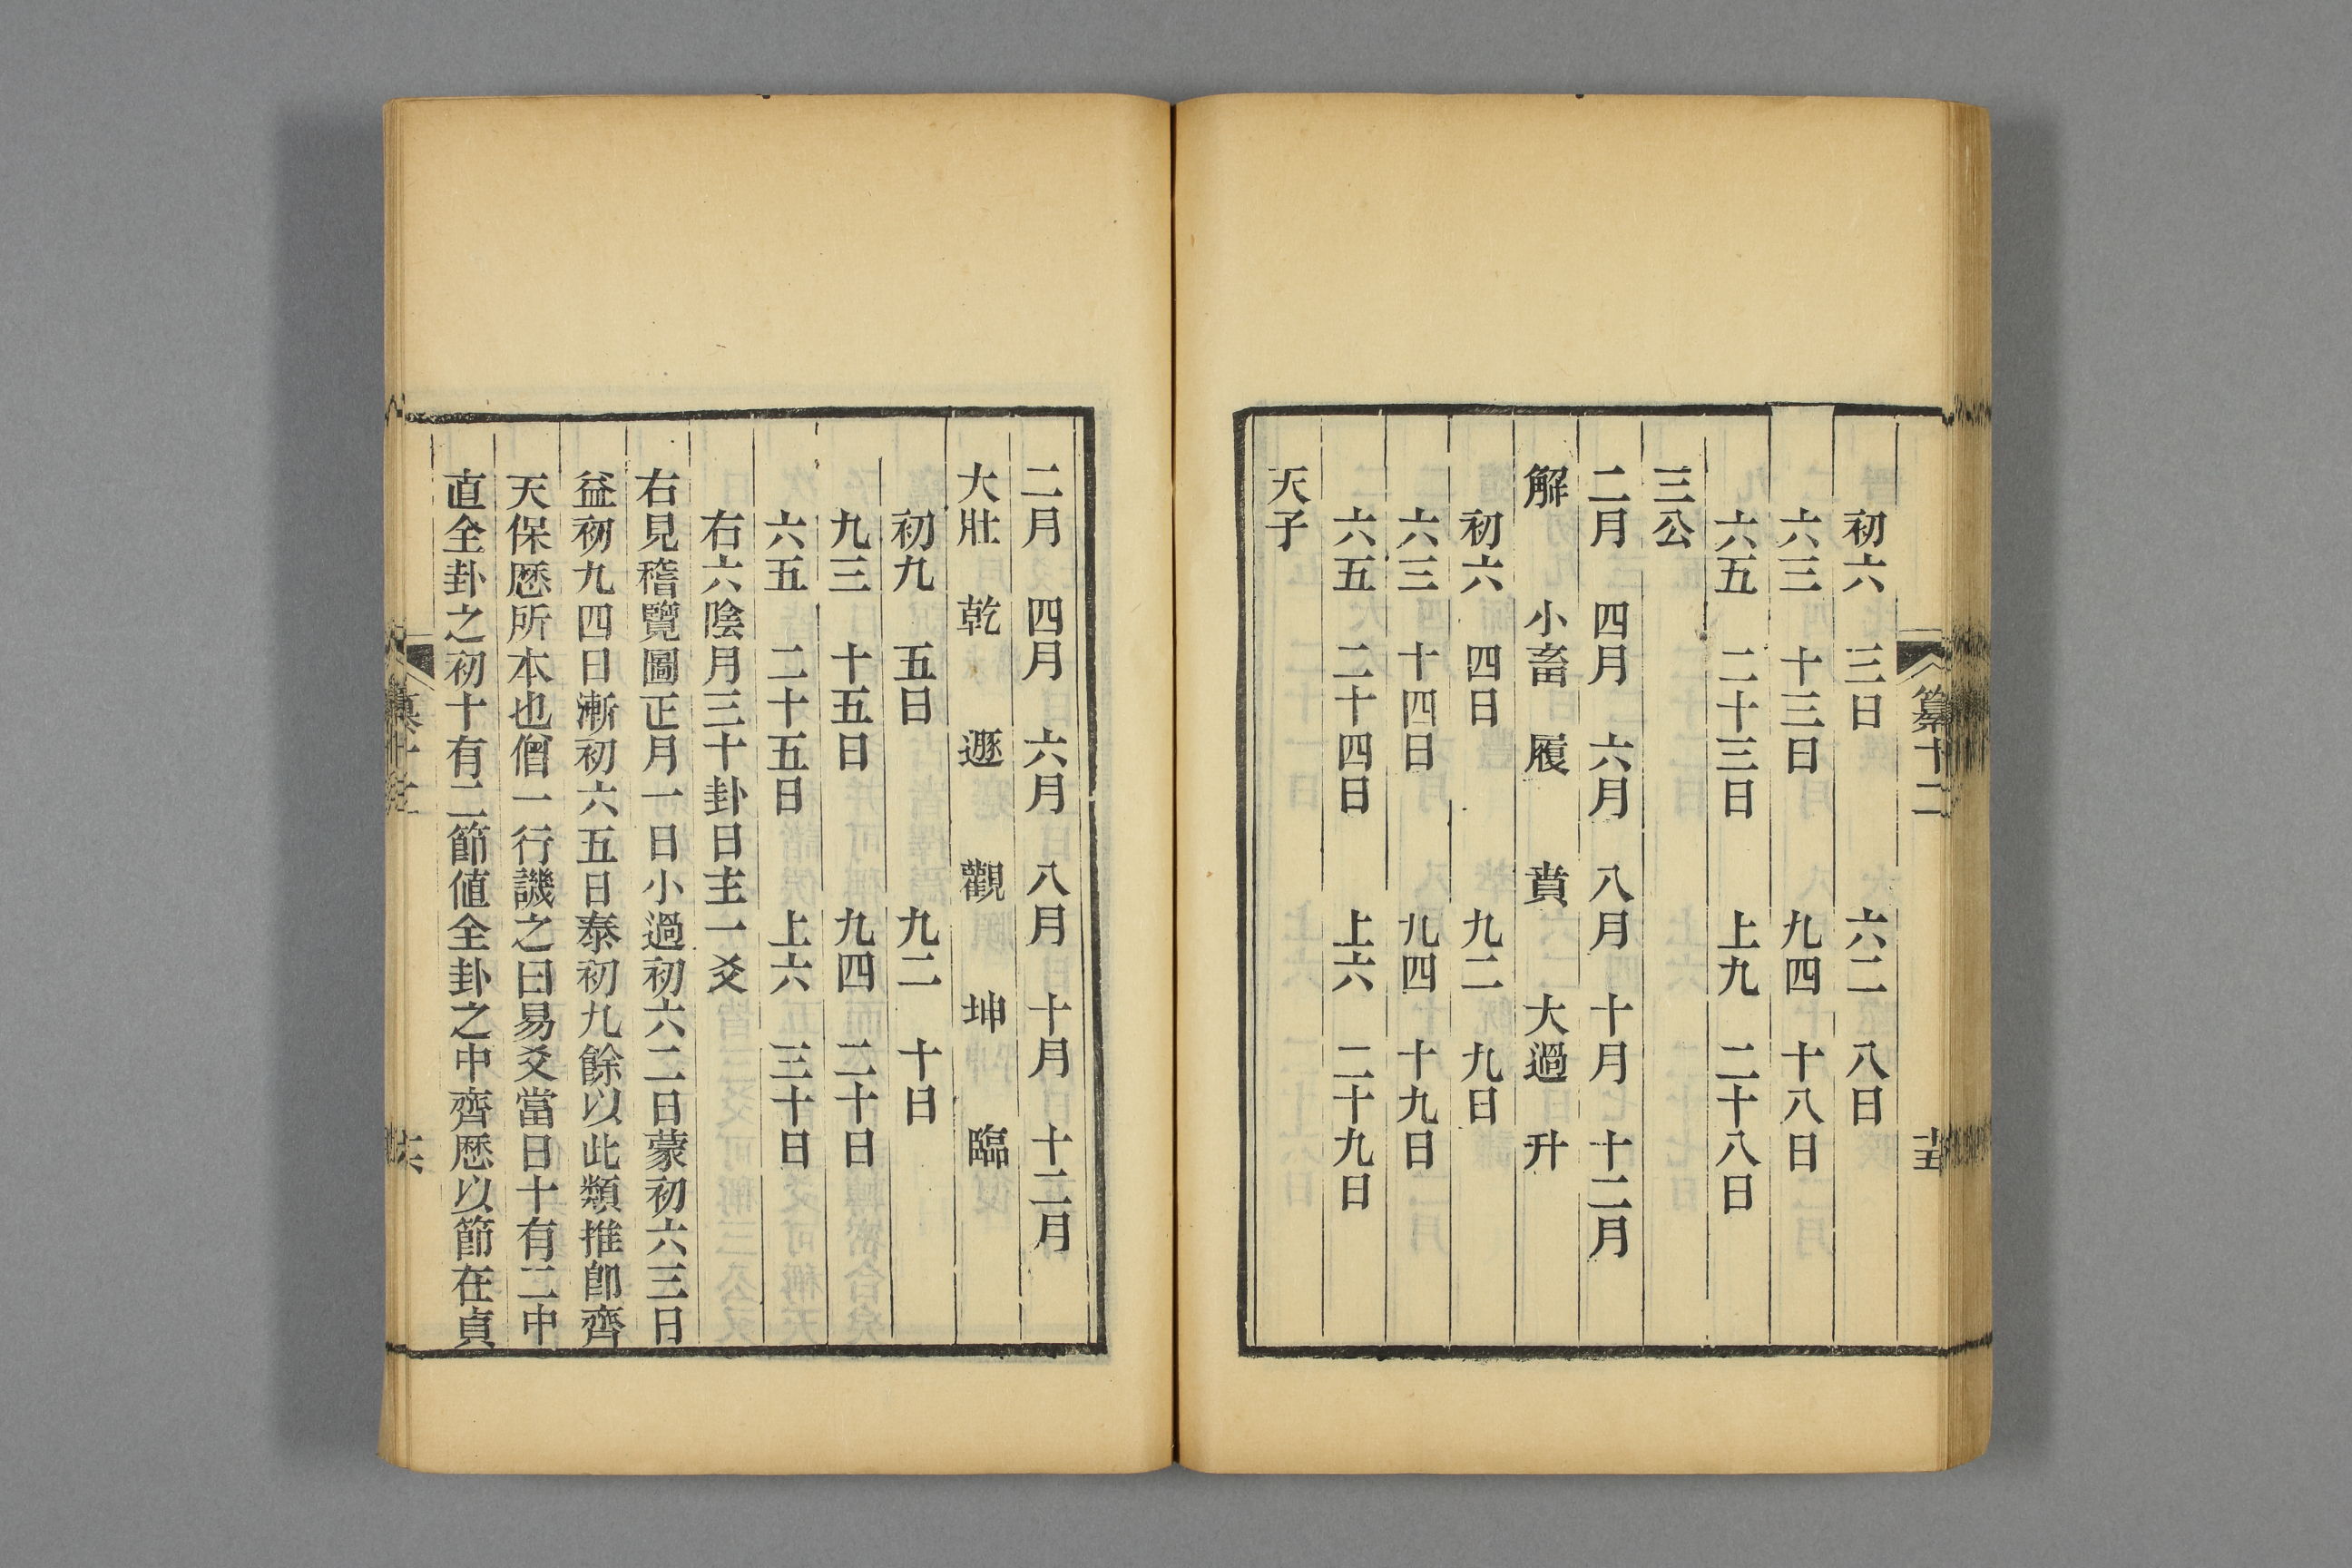 纂十二
初六　三日　六二　八日
六三　十三日　九四　十八日
六五　二十三日　上九　二十八日
三公
二月　四月　六月　八月　十月　十二月
解　小畜　履　賁　大過　升
初六　四日　九二　九日
六三　十四日　九四　十九日
六五　二十四日　上六　二十九日
天子
二月　四月　六月　八月　十月　十二月
大壯　乾　遯　觀　坤　臨
初九　五日　九二　十日
九三　十五日　九四　二十日
六五　二十五日　上六　三十日
右六陰月三十卦日主一爻
右見稽覽圖正月一日小過初六二日蒙初六三日
益初九四日漸初六五日泰初九餘以此類推卽齊
天保厯所本也僧一行譏之曰易爻當日十有二中
直全卦之初十有二節値全卦之中齊厯以節在貞